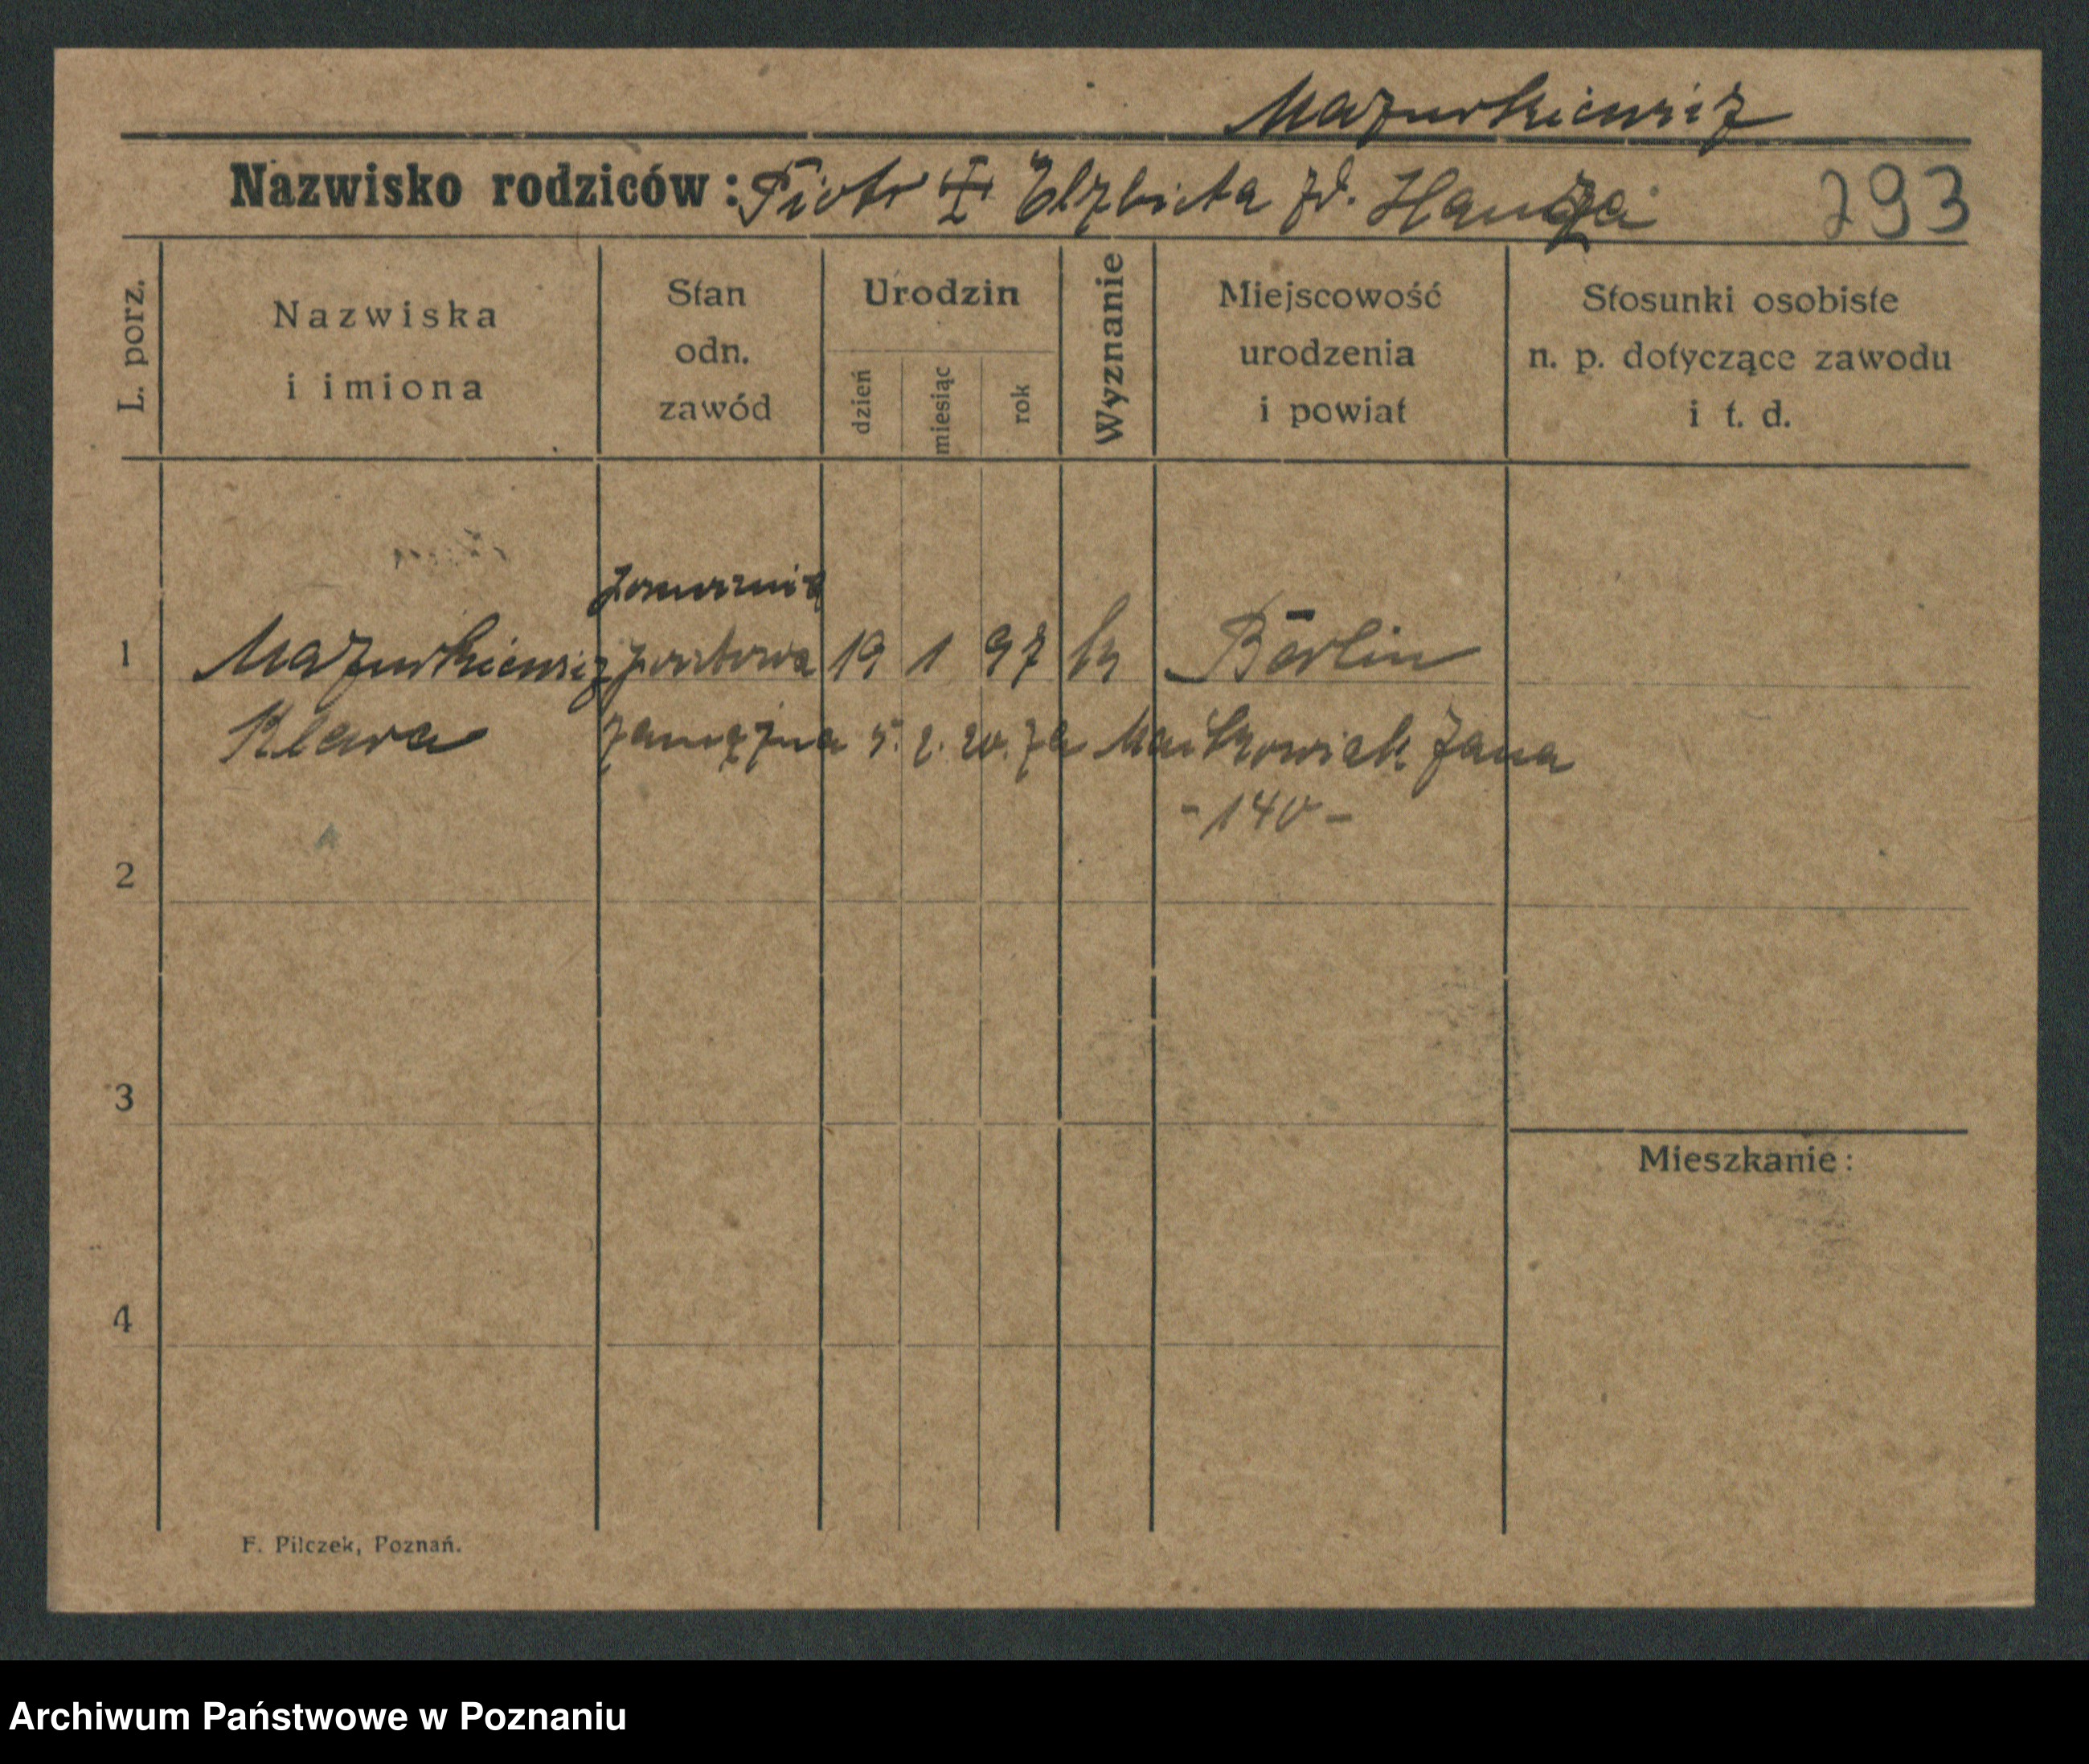 Mazurkiewicz
Nazwisko rodziców: Piotr Elzbieta zd.
293
L. porz.
Nazwiska
i imiona
Stan
odn.
zawód
Urodzin
dzień
miesiąc
rok
Wyznanie
Miejscowość
urodzenia
i powiat
Stosunki osobiste
n. p. dotyczące zawodu
i t. d.
1 Mazurkiewicz pocztowa 19 1 97 Berlin
Klara zamężna 5. 2. 20. za Jana
- 140 -
2
3
Mieszkanie:
4
F. Pilczek, Poznań.
Archiwum Państwowe w Poznaniu